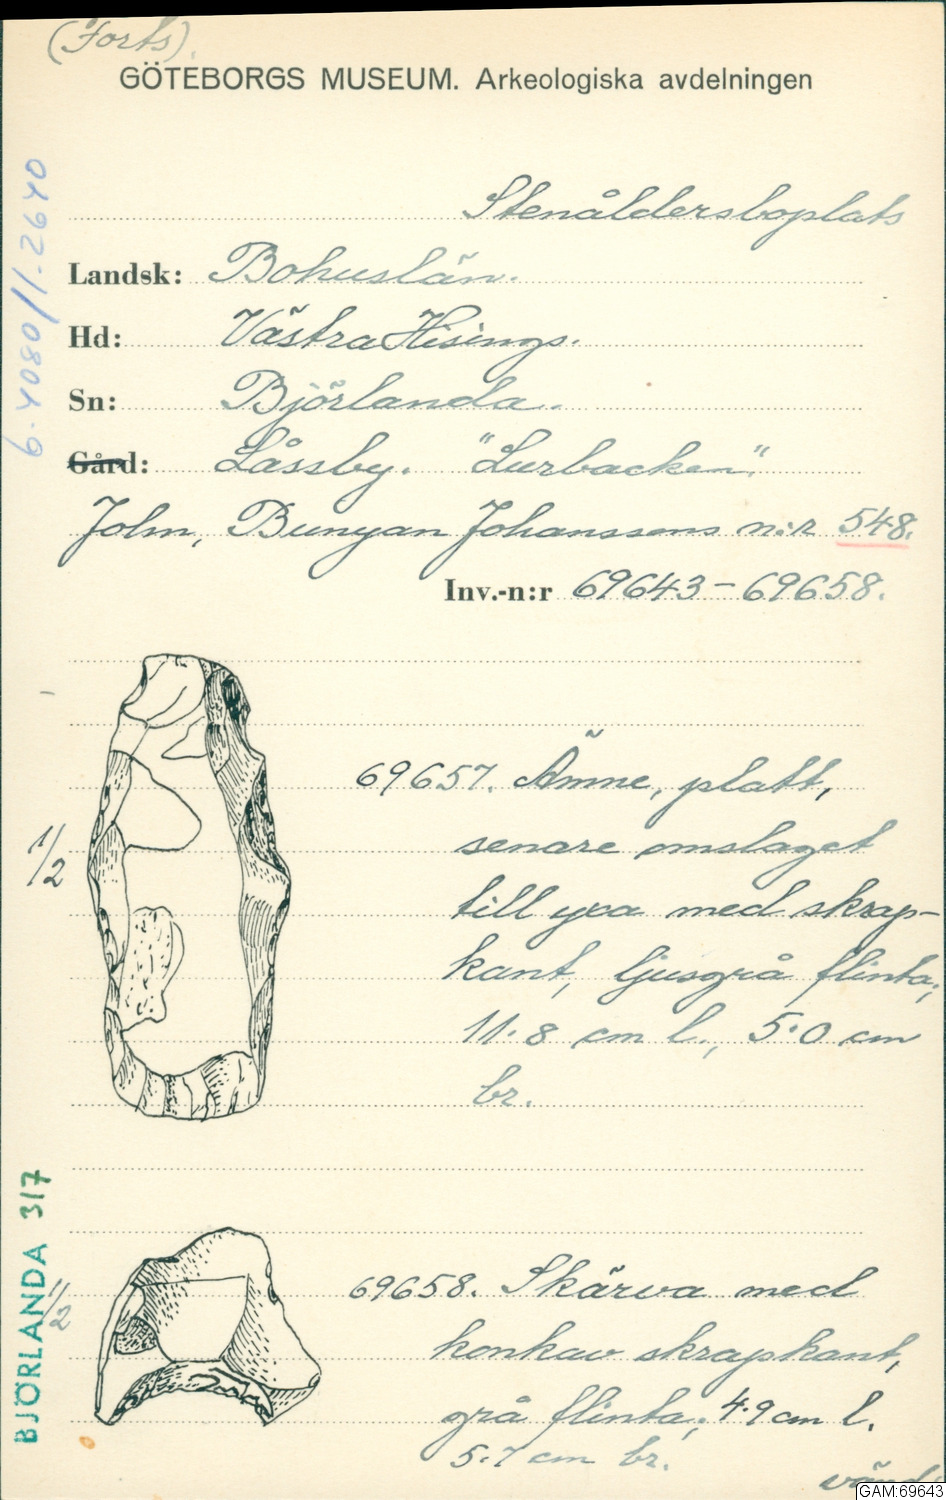 (Forts).
GÖTEBORGS MUSEUM. Arkeologiska avdelningen
6-4080/1-2640
Stenåldersboplats
Landsk: Bohuslän.
Hd: Västra Hisings.
Sn: Björlanda.
Gård: Låssby. "Lurbacken"
John, Bunyan Johanssons n:r 548.
Inv.-n:r 69643-69658.
1/2
69657. Ämne, platt,
senare omslaget
till yxa med skrap-
kant, ljusgrå flinta;
11.8 cm l., 5.0 cm
br.
BJÖRLANDA 317
1/2
69658. Skärva med
konkav skrapkant,
grå flinta; 4.9 cm l.
5.7 cm br.
vänd
GAM:69643